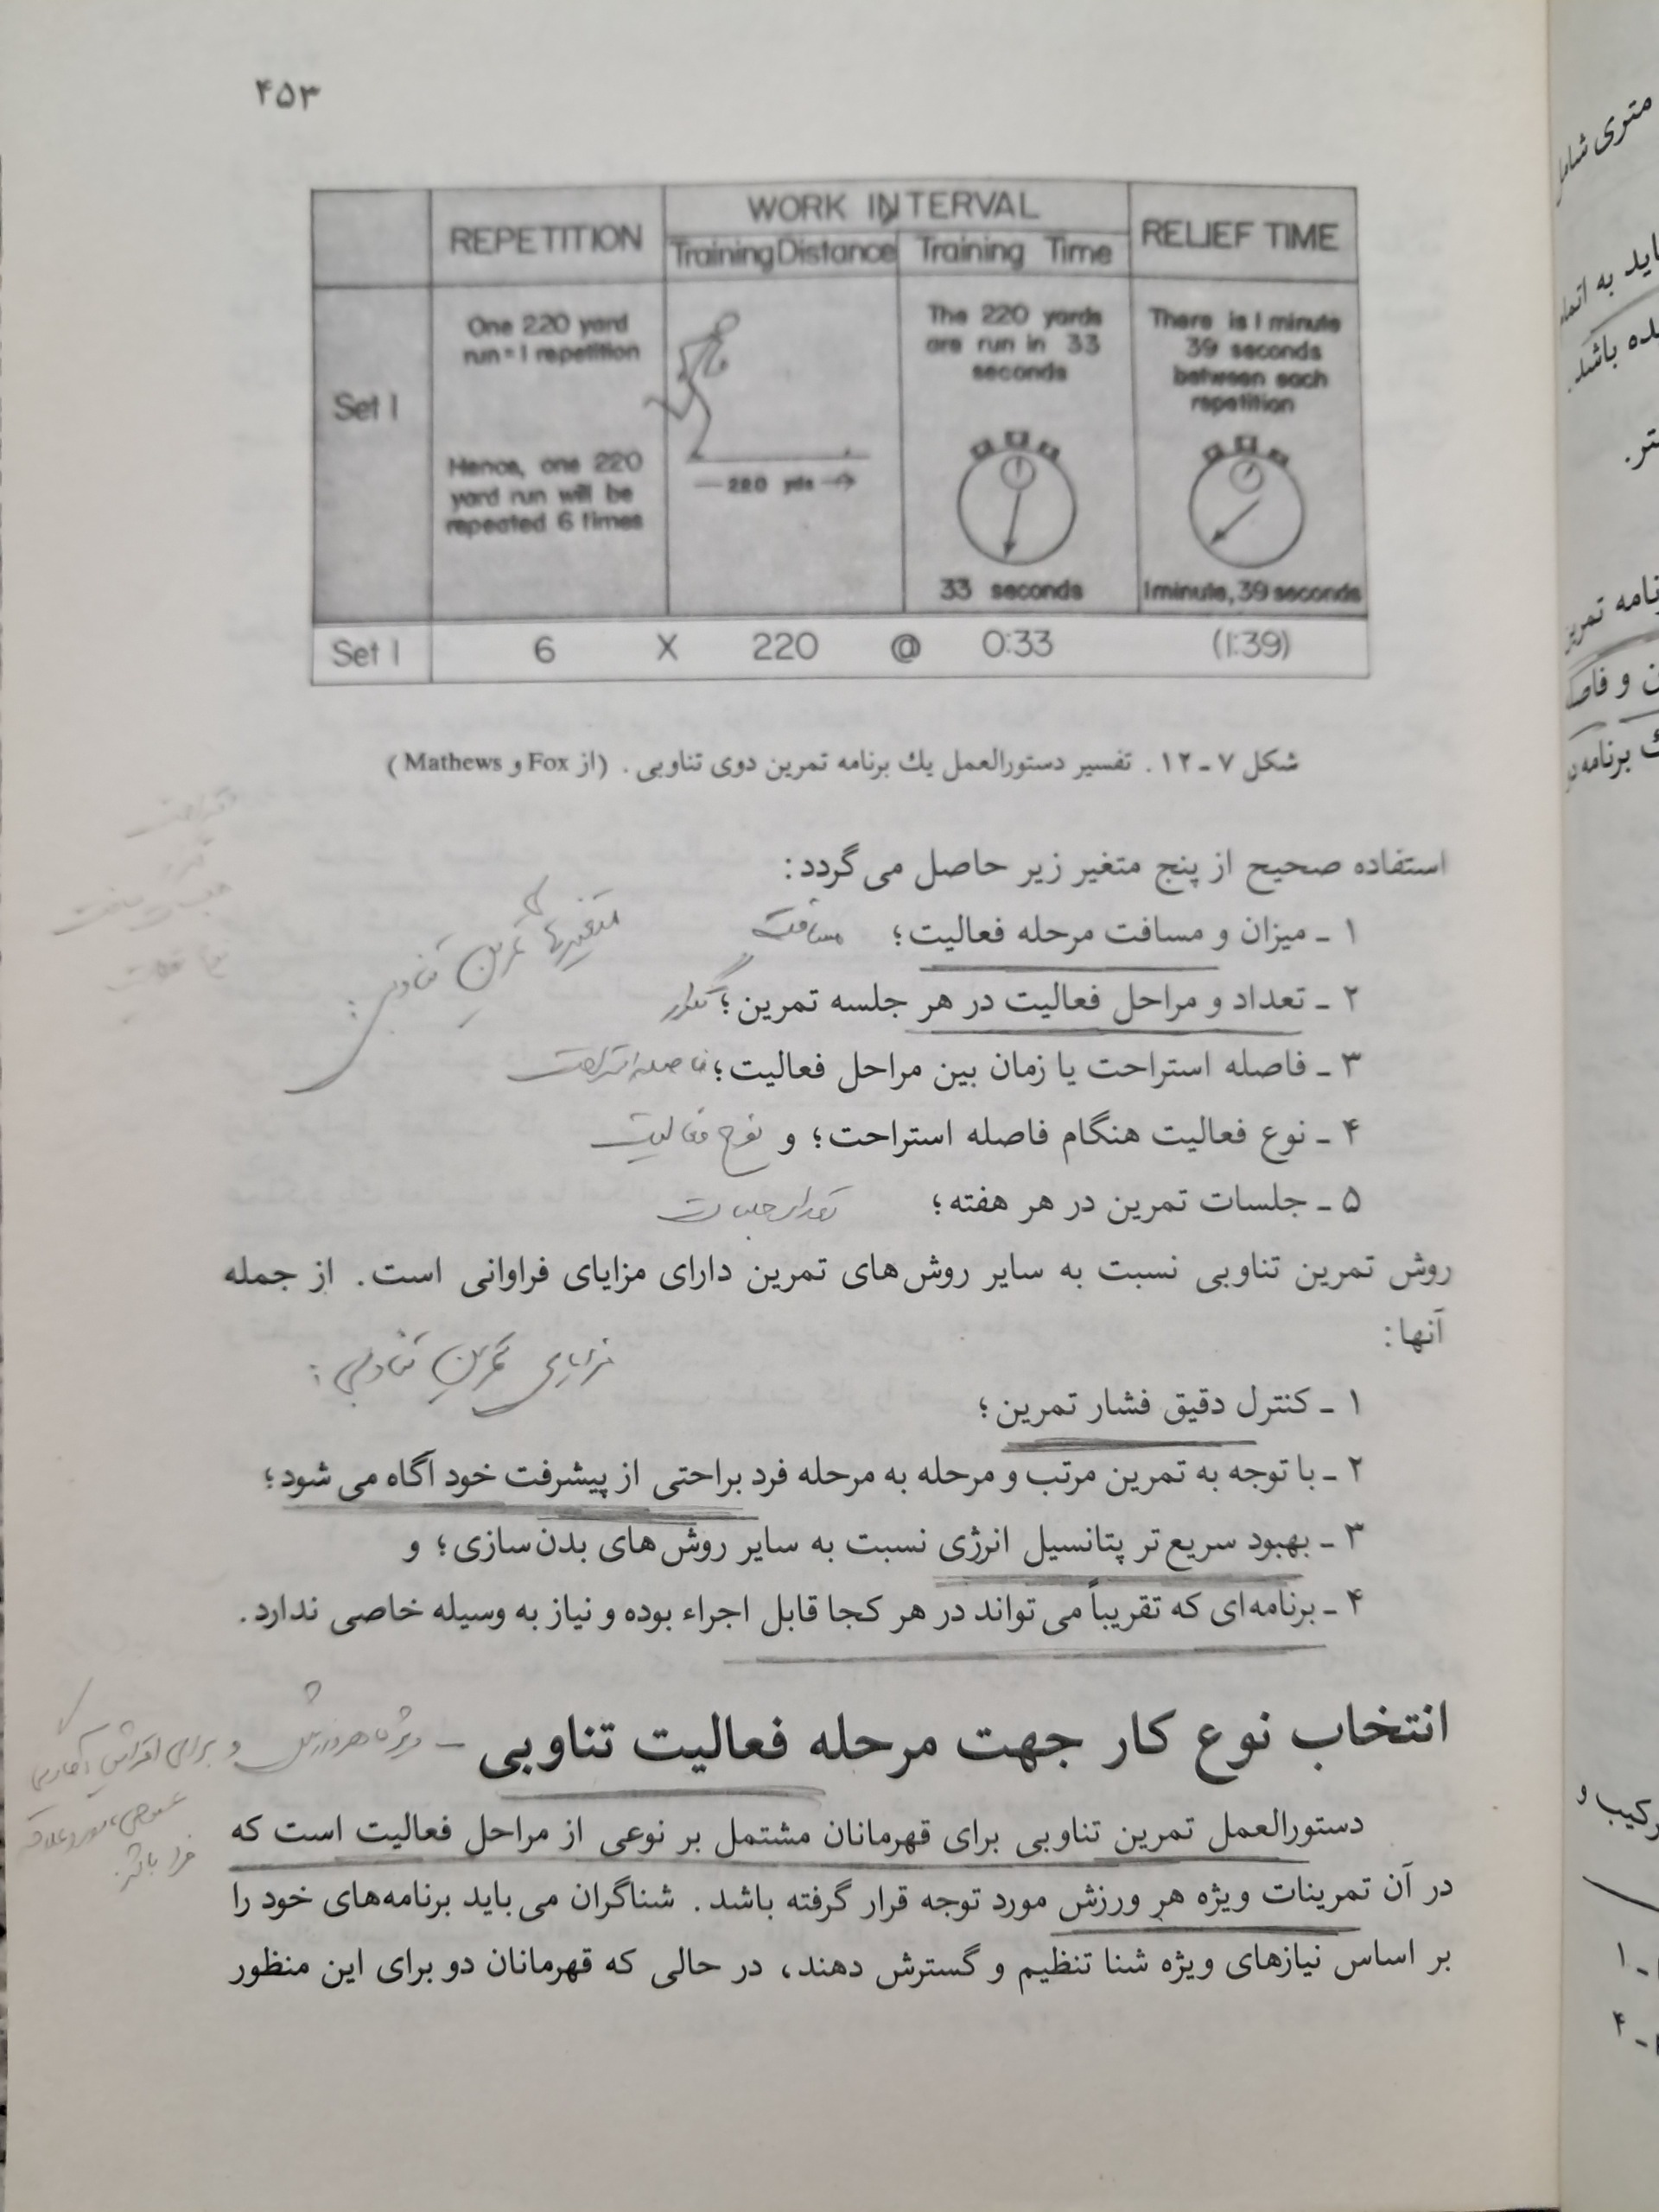 ۴۵۳
REPETITION
WORK INTERVAL
Training Distance
Training Time
RELIEF TIME
Set 1
One 220 yard
run = 1 repetition
Hence, one 220
yard run will be
repeated 6 times
220 yds
The 220 yards
are run in 33
seconds
33 seconds
There is 1 minute
39 seconds
between each
repetition
1 minute, 39 seconds
Set 1 6 X 220 @ 0:33 (1:39)
شکل ۷ ـ ۱۲ . تفسیر دستورالعمل یك برنامه تمرین دوی تناوبی . (از Fox و Mathews )
استفاده صحیح از پنج متغیر زیر حاصل می گردد:
متغیرهای تمرین تناوبی :
۱ ـ میزان و مسافت مرحله فعالیت؛ مسافت
۲ ـ تعداد و مراحل فعالیت در هر جلسه تمرین؛ تکرار
۳ ـ فاصله استراحت یا زمان بین مراحل فعالیت؛ فاصله استراحت
۴ ـ نوع فعالیت هنگام فاصله استراحت؛ و نوع فعالیت
۵ ـ جلسات تمرین در هر هفته؛ تعداد جلسات
روش تمرین تناوبی نسبت به سایر روش های تمرین دارای مزایای فراوانی است. از جمله
آنها:
مزایای تمرین تناوبی :
۱ ـ کنترل دقیق فشار تمرین؛
۲ ـ با توجه به تمرین مرتب و مرحله به مرحله فرد براحتی از پیشرفت خود آگاه می شود؛
۳ ـ بهبود سریع تر پتانسیل انرژی نسبت به سایر روش های بدن سازی؛ و
۴ ـ برنامه ای که تقریباً می تواند در هر کجا قابل اجراء بوده و نیاز به وسیله خاصی ندارد.
انتخاب نوع کار جهت مرحله فعالیت تناوبی – ویژه هر ورزش و برای افزایش آمادگی
عمومی، مورد علاقه
فرد باشد.
دستورالعمل تمرین تناوبی برای قهرمانان مشتمل بر نوعی از مراحل فعالیت است که
در آن تمرینات ویژه هر ورزش مورد توجه قرار گرفته باشد. شناگران می باید برنامه های خود را
بر اساس نیازهای ویژه شنا تنظیم و گسترش دهند، در حالی که قهرمانان دو برای این منظور
متری شامل